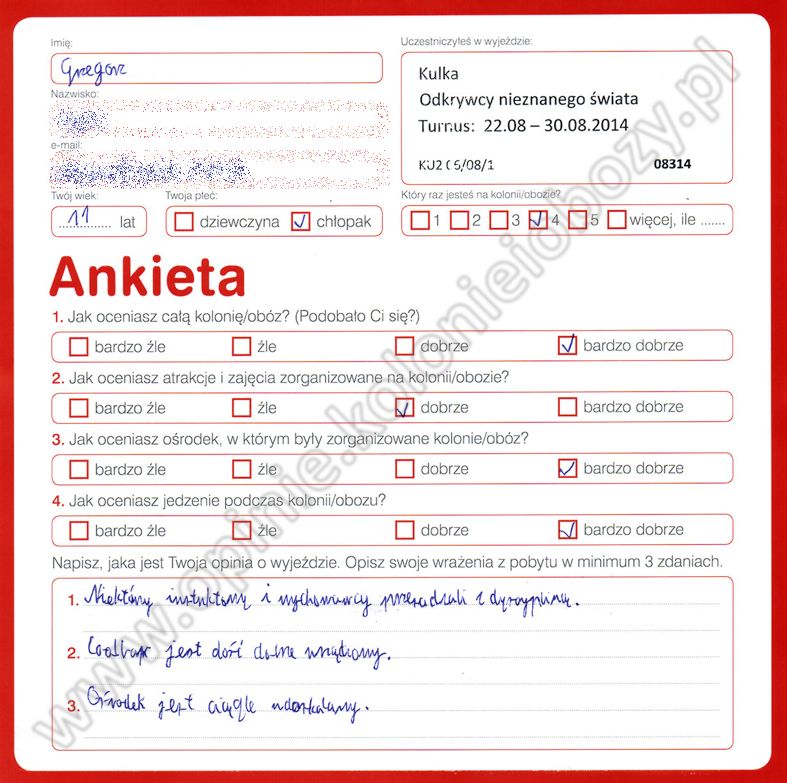 Imię:
Grzegorz
Nazwisko:
e-mail:
Twój wiek:
11 lat
Twoja płeć:
dziewczyna chłopak
Uczestniczyłeś w wyjeździe:
Kulka
Odkrywcy nieznanego świata
Turnus: 22.08 – 30.08.2014
08314
Który raz jesteś na kolonii/obozie?
1 2 3 4 5 więcej, ile .......
Ankieta
1. Jak oceniasz całą kolonię/obóz? (Podobało Ci się?)
bardzo źle źle dobrze bardzo dobrze
2. Jak oceniasz atrakcje i zajęcia zorganizowane na kolonii/obozie?
bardzo źle źle dobrze bardzo dobrze
3. Jak oceniasz ośrodek, w którym były zorganizowane kolonie/obóz?
bardzo źle źle dobrze bardzo dobrze
4. Jak oceniasz jedzenie podczas kolonii/obozu?
bardzo źle źle dobrze bardzo dobrze
Napisz, jaka jest Twoja opinia o wyjeździe. Opisz swoje wrażenia z pobytu w minimum 3 zdaniach.
1. Niektórzy instruktorzy i wychowawcy przesadzali z dyscypliną.
2. jest dość dobrze urządzony.
3. Ośrodek jest ciągle udoskalany.
www.opinie.kolonieiobozy.pl